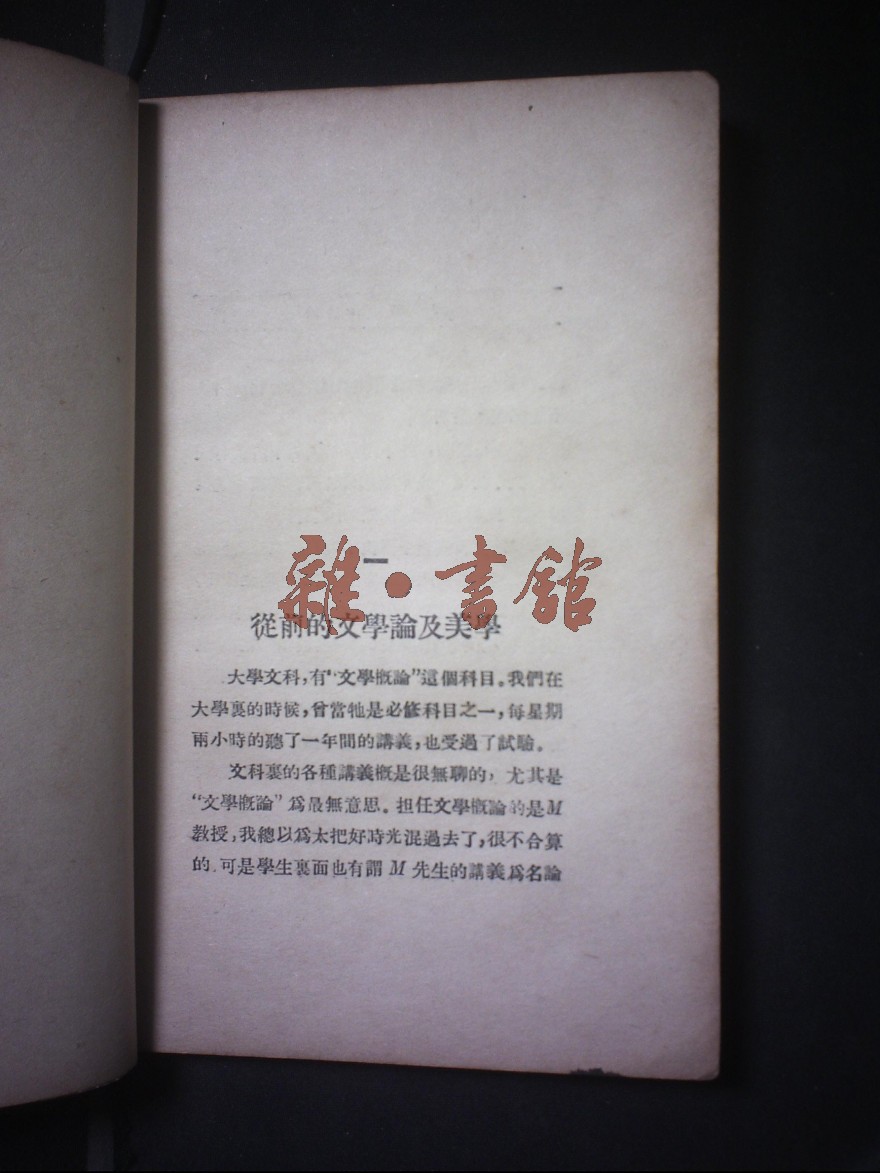 一
雜·書舘
從前的文學論及美學
大學文科,有“文學概論”這個科目。我們在
大學裏的時候,曾當牠是必修科目之一,每星期
兩小時的聽了一年間的講義,也受過了試驗。
文科裏的各種講義概是很無聊的,尤其是
“文學概論”爲最無意思。担任文學概論的是M
教授,我總以爲太把好時光混過去了,很不合算
的.可是學生裏面也有謂M先生的講義爲名論